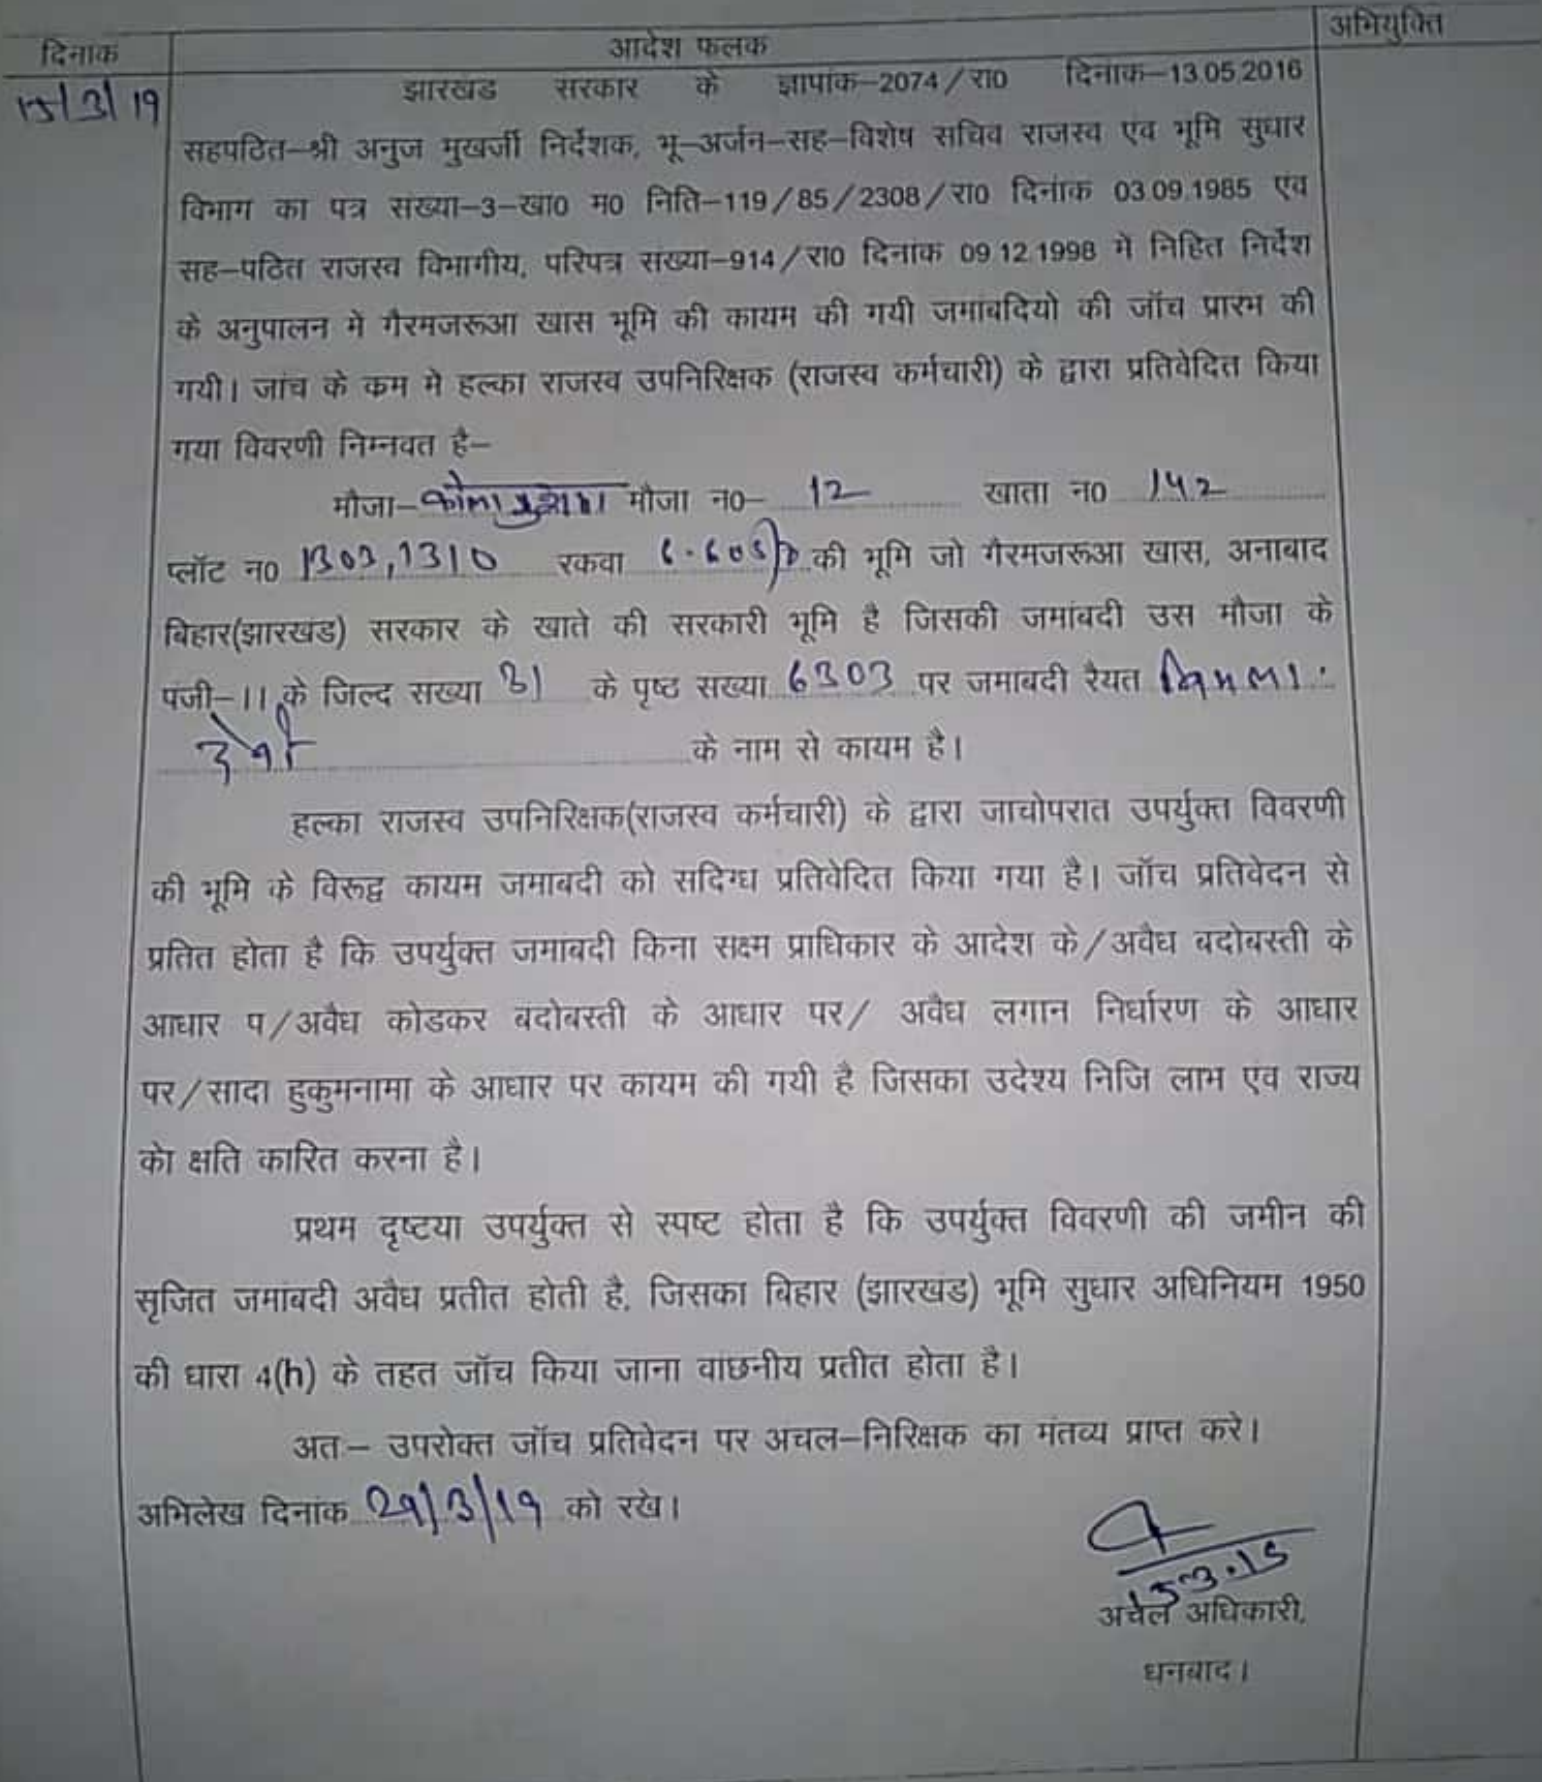 दिनाक आदेश फलक अभियुक्ति
15/3/19 झारखंड सरकार के ज्ञापांक–2074/रा0 दिनाक–13.05.2016
सहपठित–श्री अनुज मुखर्जी निर्देशक, भू–अर्जन–सह–विशेष सचिव राजस्व एंव भूमि सुधार
विभाग का पत्र संख्या–3–खा0 म0 निति–119/85/2308/रा0 दिनांक 03.09.1985 एंव
सह–पठित राजस्व विभागीय, परिपत्र संख्या–914/रा0 दिनांक 09.12.1998 में निहित निर्देश
के अनुपालन मे गैरमजरूआ खास भूमि की कायम की गयी जमांबदियो की जॉच प्रारभ की
गयी। जांच के कम मे हल्का राजस्व उपनिरिक्षक (राजस्व कर्मचारी) के द्वारा प्रतिवेदित किया
गया विवरणी निम्नवत है–
मौजा– मौजा न0– 12 खाता न0 142
प्लॉट न0 1303,1310 रकवा की भूमि जो गैरमजरूआ खास, अनाबाद
बिहार(झारखंड) सरकार के खाते की सरकारी भूमि है जिसकी जमांबदी उस मौजा के
पंजी–11 के जिल्द संख्या 31 के पृष्ठ संख्या 6303 पर जमाबदी रैयत
देवी के नाम से कायम है।
हल्का राजस्व उपनिरिक्षक(राजस्व कर्मचारी) के द्वारा जाचोपरात उपर्युक्त विवरणी
की भूमि के विरूद्व कायम जमाबदी को सदिग्ध प्रतिवेदित किया गया है। जॉच प्रतिवेदन से
प्रतित होता है कि उपर्युक्त जमांबदी किना सक्ष्म प्राधिकार के आदेश के/अवैध बदोबस्ती के
आधार प/अवैध कोडकर बदोबस्ती के आधार पर/ अवैध लगान निर्धारण के आधार
पर/सादा हुकुमनामा के आधार पर कायम की गयी है जिसका उदेश्य निजि लाभ एंव राज्य
को क्षति कारित करना है।
प्रथम दृष्टया उपर्युक्त से स्पष्ट होता है कि उपर्युक्त विवरणी की जमीन की
सृजित जमांबदी अवैध प्रतीत होती है, जिसका बिहार (झारखंड) भूमि सुधार अधिनियम 1950
की धारा 4(h) के तहत जॉच किया जाना वांछनीय प्रतीत होता है।
अत– उपरोक्त जॉच प्रतिवेदन पर अचल–निरिक्षक का मंतव्य प्राप्त करे।
अभिलेख दिनांक 29/3/19 को रखे।
अचंल अधिकारी,
धनबाद।